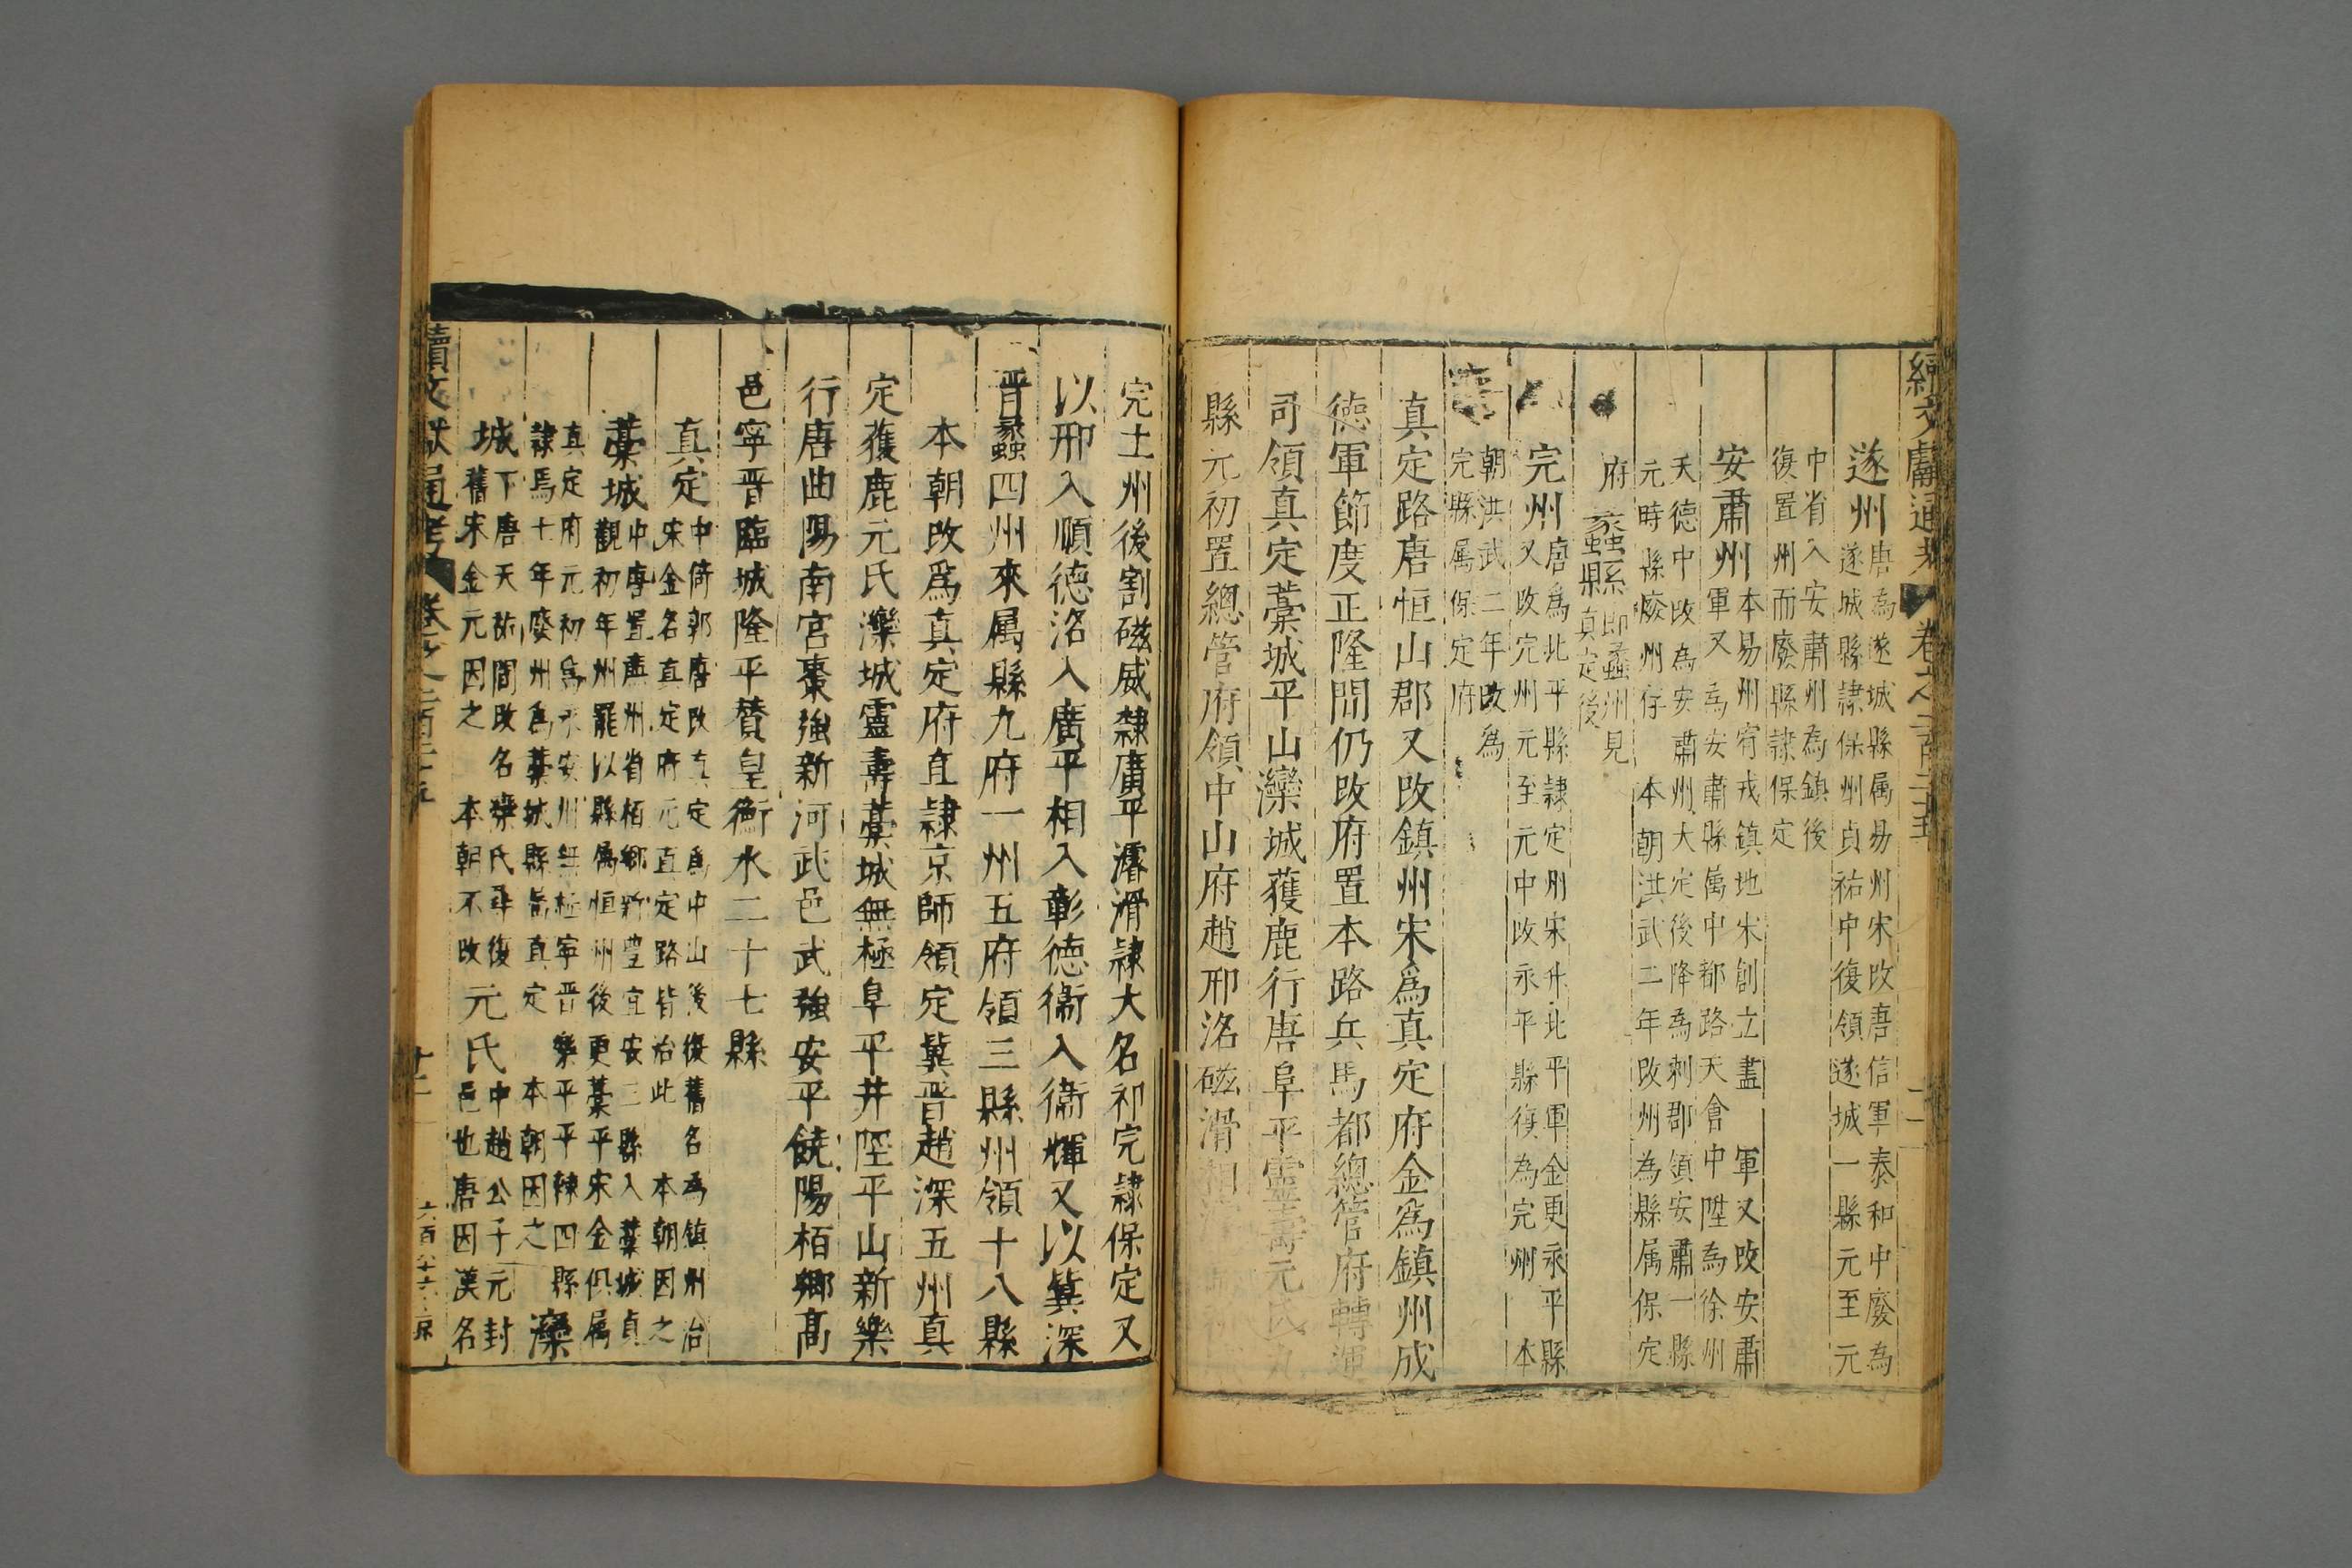 續文獻通考 卷之二百二十五
遂州唐為遂城縣属易州宋改唐信軍泰和中廢為
遂城縣隷保州貞祐中復領遂城一縣元至元
中省入安肅州為鎮後
復置州而廢縣隷保定
安肅州本易州宥戎鎮地宋創立 軍又改安肅
軍又為安肅縣属中都路天會中陞為徐州
天德中改為安肅州大定後降為刺郡領安肅一縣
元時縣廢州存 本朝洪武二年改州為縣属保定
府 蠡縣即蠡州見
真定後
完州唐為北平縣隷定州宋升北平軍金更永平縣
又改完州元至元中改永平縣復為完州 本
朝洪武二年改為
完縣属保定府
真定路唐恒山郡又改鎮州宋為真定府金為鎮州成
德軍節度正隆間仍改府置本路兵馬都總管府轉運
司領真定藁城平山灤城獲鹿行唐阜平靈壽元氏九
縣元初置總管府領中山府趙邢洺磁滑相
完土州後割磁威隸廣平濬滑隷大名祁完隷保定又
以邢入順德洺入廣平相入彰德衞入衞輝又以冀深
晋蠡四州來属縣九府一州五府領三縣州領十八縣
本朝改爲真定府直隷京師領定冀晋趙深五州真
定獲鹿元氏灤城靈壽藁城無極阜平井陘平山新樂
行唐曲陽南宮棗強新河武邑武強安平饒陽栢鄉高
邑寧晋臨城隆平贊皇衡水二十七縣
真定中倚郭唐改真定為中山後復舊名為鎮州治
宋金名真定府元真定路皆治此 本朝因之
藁城中唐置廉州省栢鄉新豊宜安三縣入藁城貞
觀初年州罷以縣属恒州後更藁平宋金俱属
真定府元初為永安州無極寧晋欒平平棘四縣
隷焉十年廢州為藁城縣属真定 本朝因之 灤
城下唐天祐間改名欒氏尋復
舊宋金元因之 本朝不改 元氏中趙公子元封
邑也唐因漢名
續文獻通考 卷之二百二十五